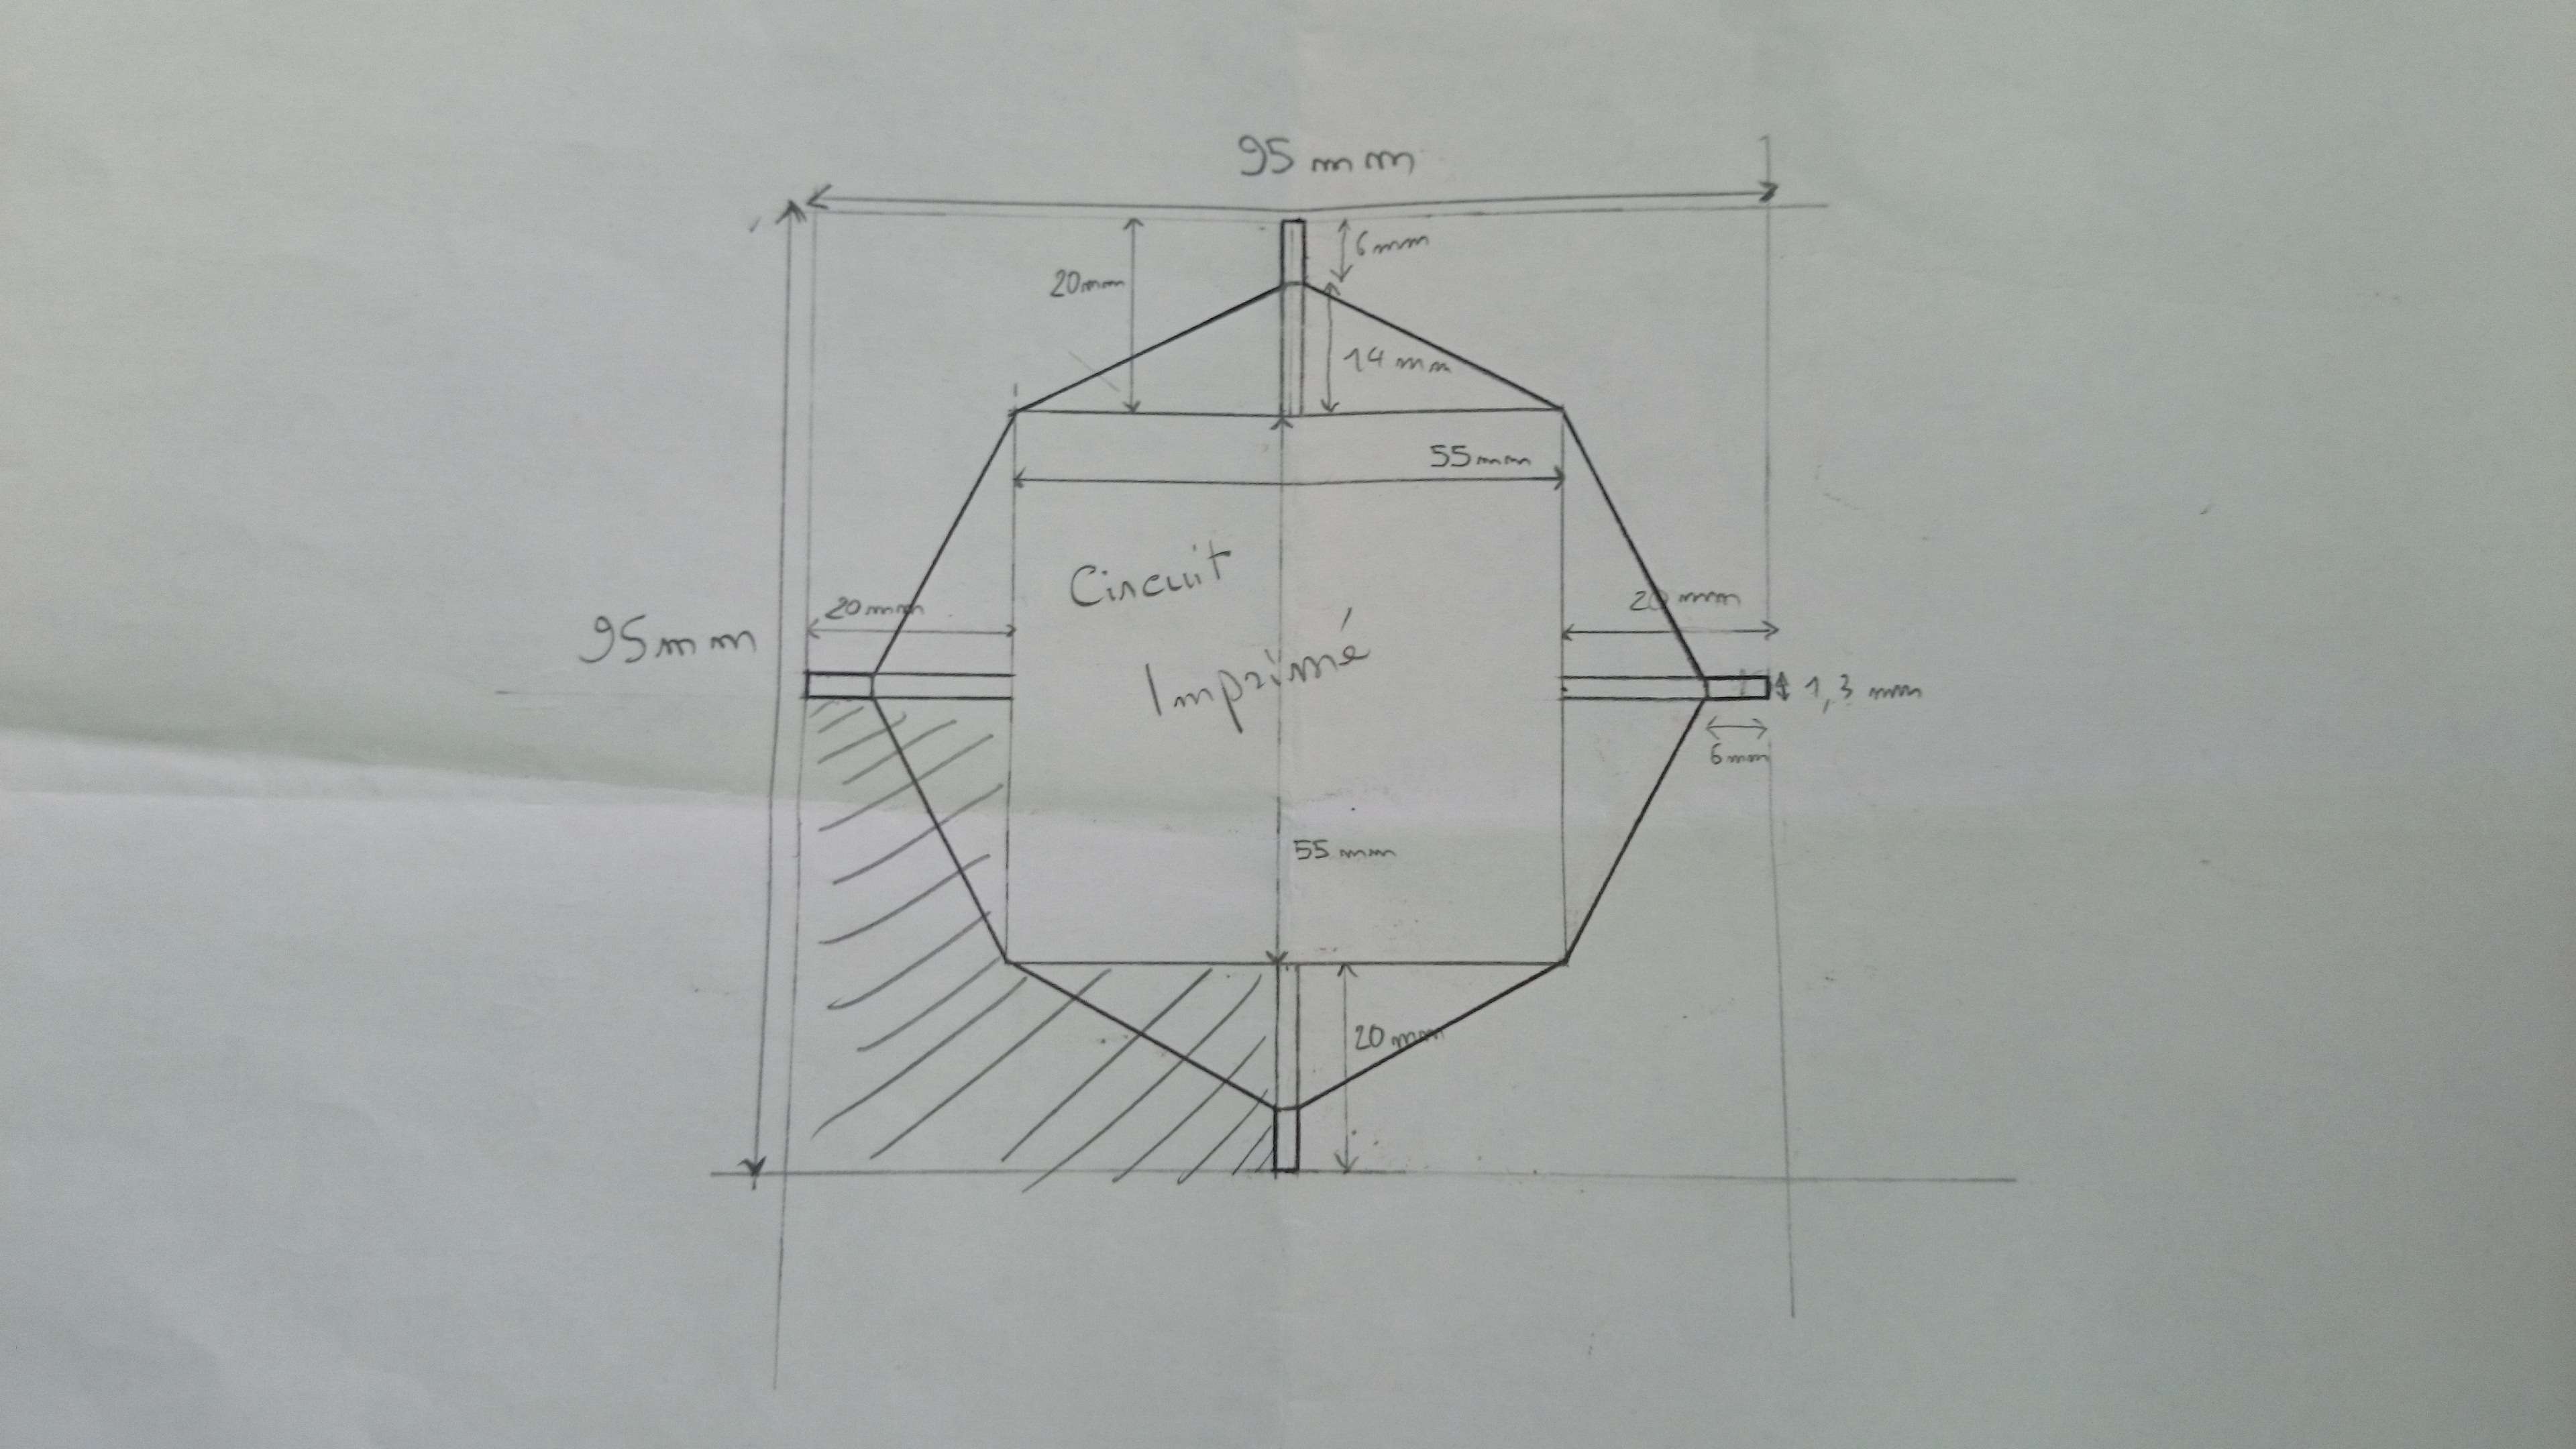 95 mm
6mm
20mm
14 mm
55mm
Circuit
Imprimé
20mm
20 mm
95mm
1,3 mm
6mm
55 mm
20 mm